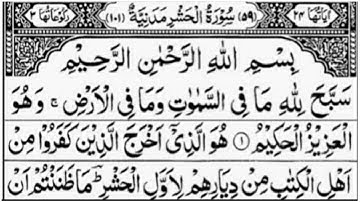 اٰيَاتُهَا ٢٤ (٥٩) سُوْرَةُ الْحَشْرِ مَدَنِيَّةٌ (١٠١) رُكُوْعَاتُهَا ٣
بِسْمِ اللّٰهِ الرَّحْمٰنِ الرَّحِيْمِ
سَبَّحَ لِلّٰهِ مَا فِى السَّمٰوٰتِ وَمَا فِى الْاَرْضِ ۚ وَهُوَ
الْعَزِيْزُ الْحَكِيْمُ ① هُوَ الَّذِىْۤ اَخْرَجَ الَّذِيْنَ كَفَرُوْا مِنْ
اَهْلِ الْكِتٰبِ مِنْ دِيَارِهِمْ لِاَوَّلِ الْحَشْرِ ؔ مَا ظَنَنْتُمْ اَنْ